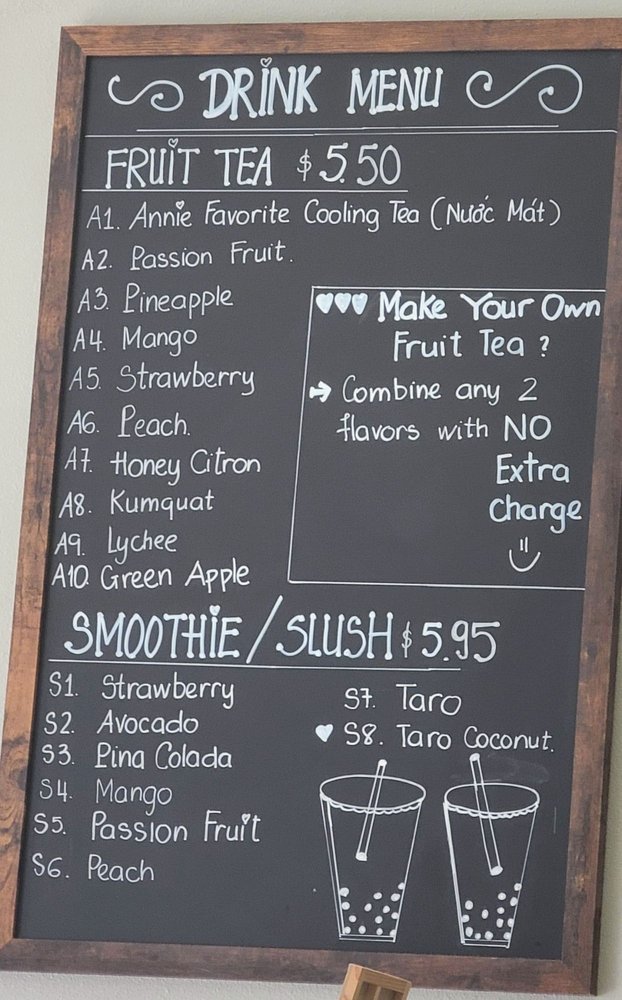 DRINK MENU
FRUIT TEA $5.50
A1. Annie Favorite Cooling Tea (Nước Mát)
A2. Passion Fruit.
A3. Pineapple
A4. Mango
A5. Strawberry
A6. Peach.
A7. Honey Citron
A8. Kumquat
A9. Lychee
A10. Green Apple
Make Your Own
Fruit Tea ?
Combine any 2
flavors with NO
Extra
Charge
SMOOTHIE/SLUSH $5.95
S1. Strawberry
S2. Avocado
S3. Pina Colada
S4. Mango
S5. Passion Fruit
S6. Peach
S7. Taro
S8. Taro Coconut.